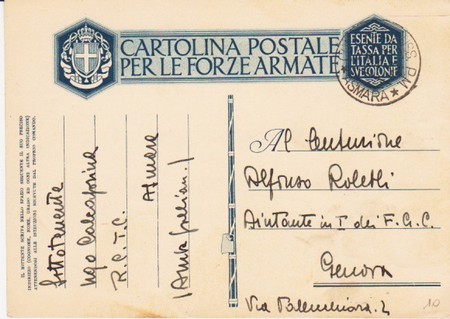 CARTOLINA POSTALE
PER LE FORZE ARMATE
ESENTE DA
TASSA PER
L'ITALIA E
SVE COLONIE
ASMARA
IL MITTENTE SCRIVA NELLO SPAZIO SEGUENTE IL SUO PRECISO
INDIRIZZO (COGNOME, NOME, GRADO ED OGNI ALTRA INDICAZIONE)
ATTENENDOSI ALLE ISTRUZIONI RICEVUTE DAL PROPRIO COMANDO.
Sottotenente
Ugo
R.C.T.C.
Asmara
Al Centurione
Alfonso
Aiutante in I dei F.G.C.
Genova
Via 2
10